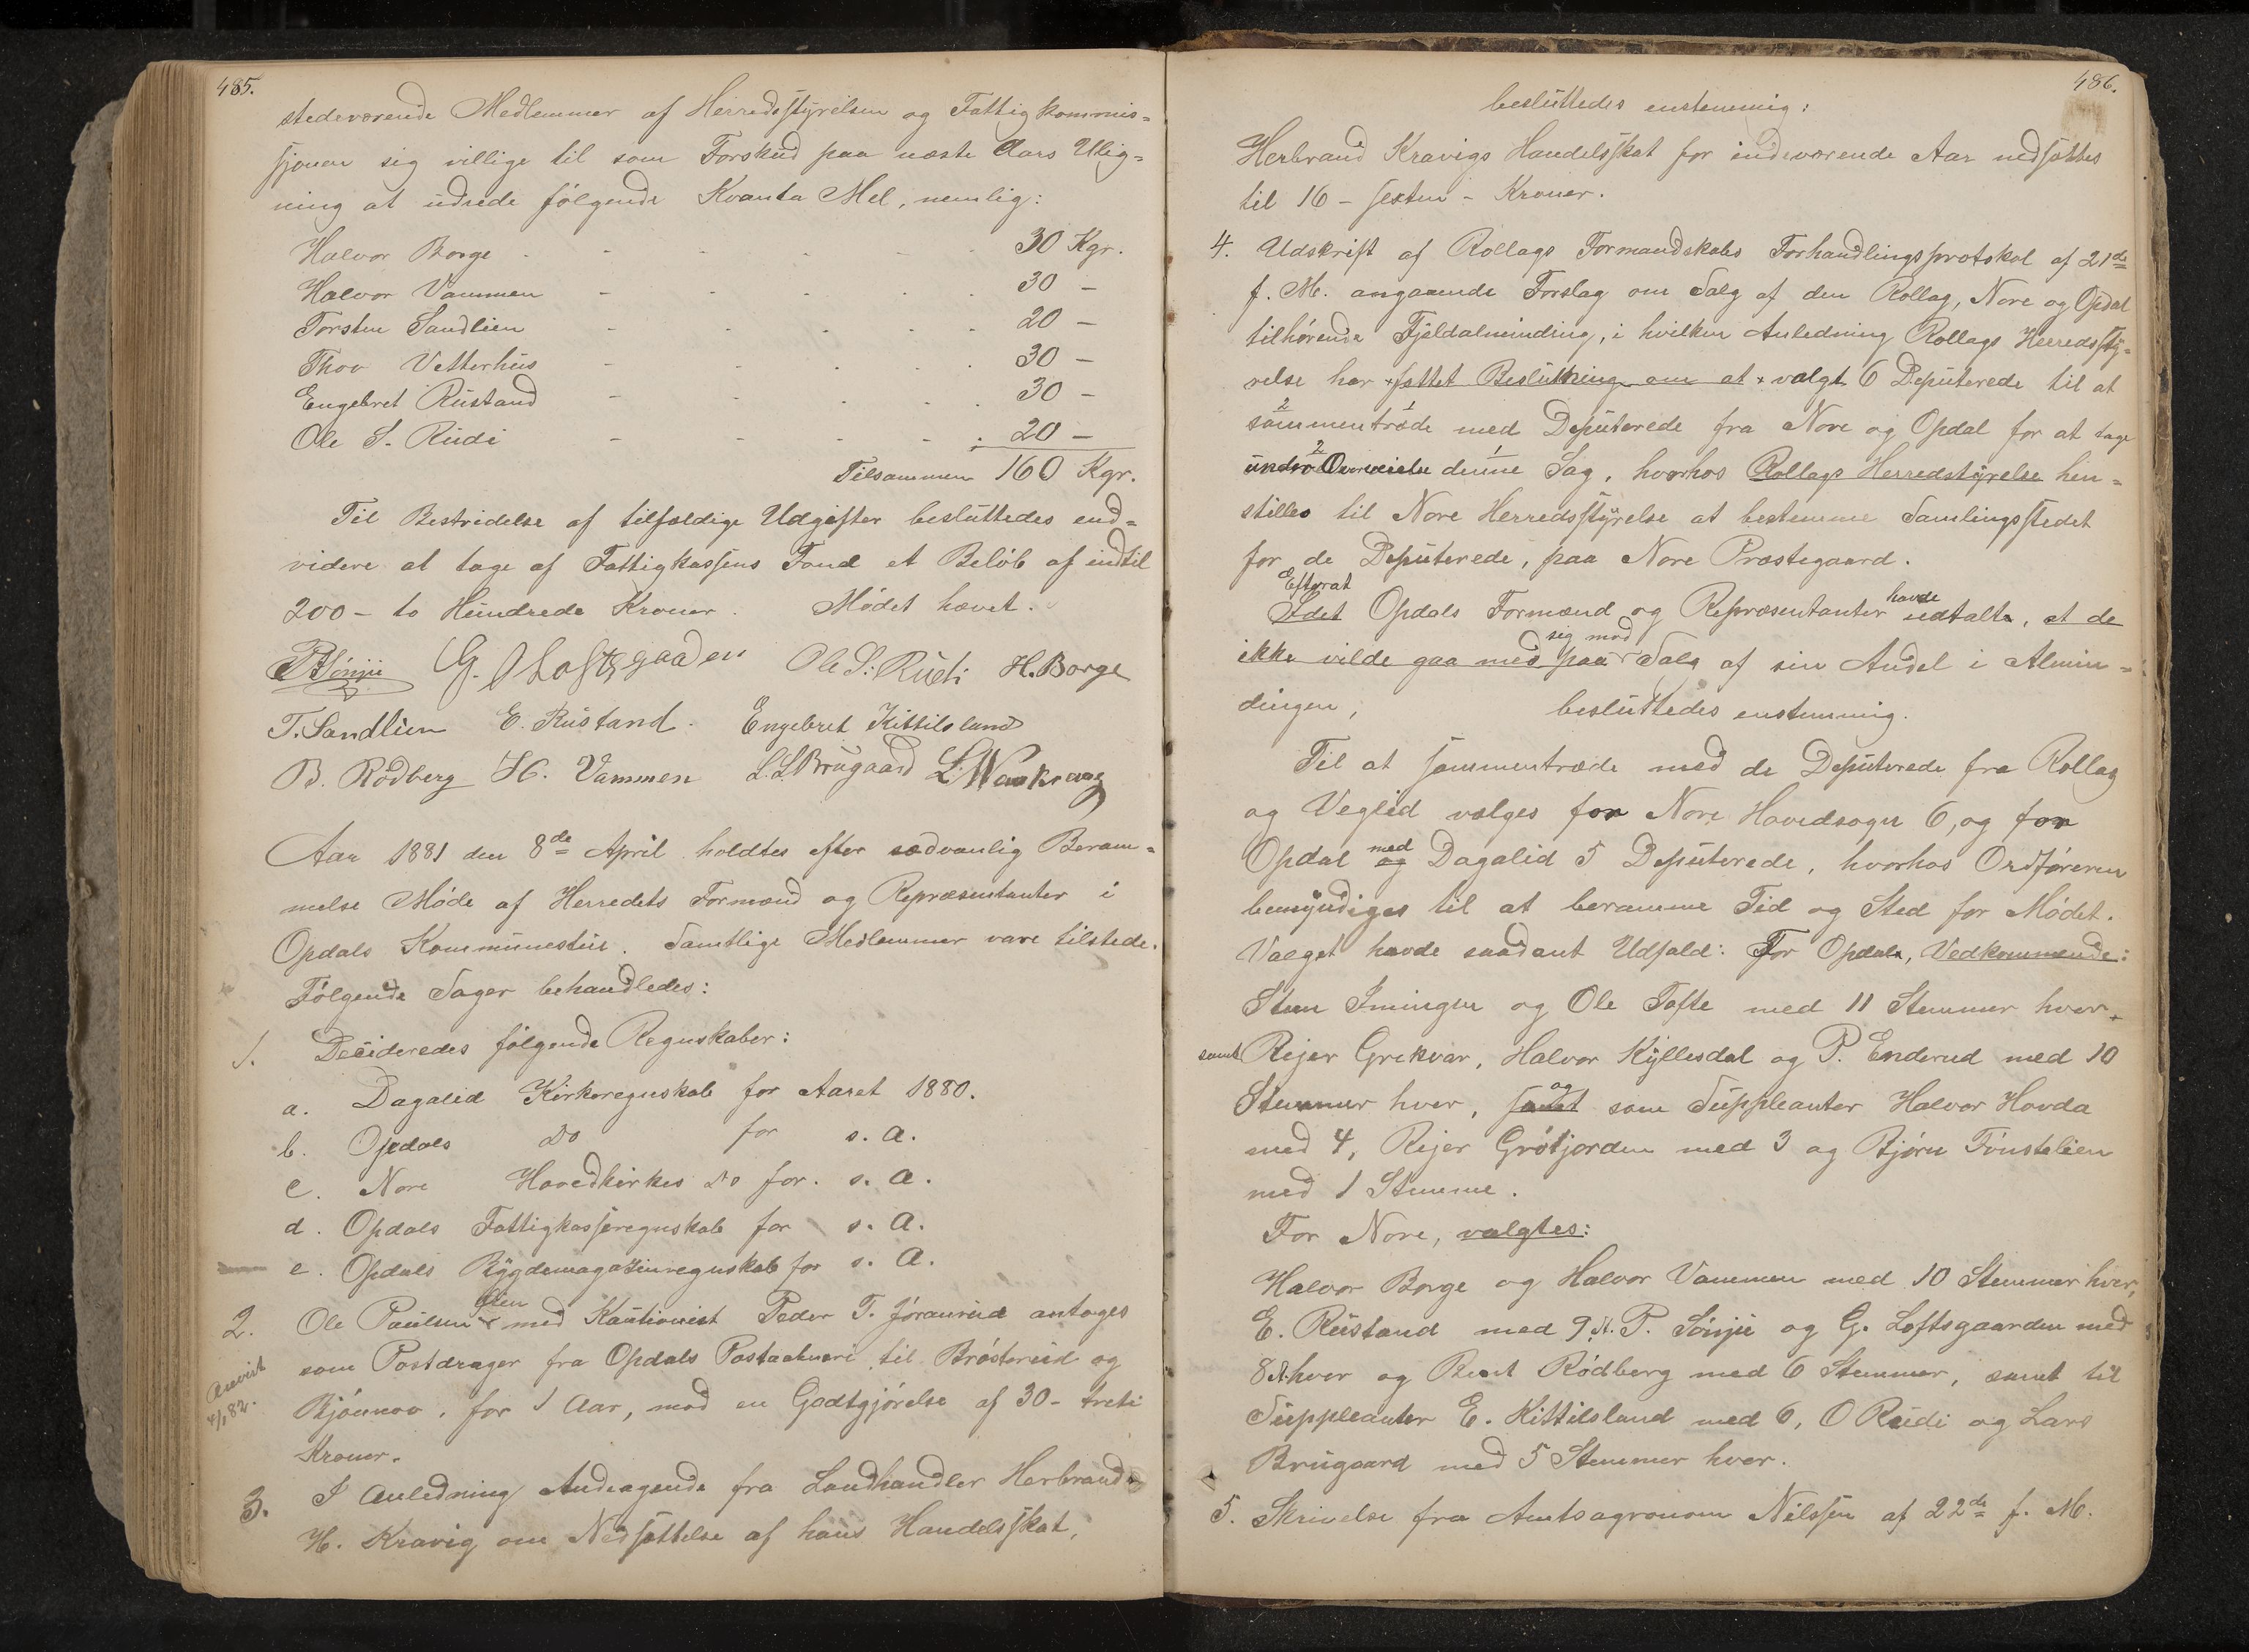 485.
stedeværende Medlemmer af Herredsstyrelsen og Fattigkommis=
sjonen sig villige til som Forskud paa næste Aars Ulig=
ning at udrede følgende Kvanta Mel, nemlig:
Halvor Borge - - - - - 30 Kgr.
Halvor Vammen - - - - - 30 -
Torsten Sandlien - - - - - 20 -
Thov Vetterhus - - - - - 30 -
Engebret Rustand - - - - - 30 -
Ole S. Rudi - - - - - 20 -
Tilsammen 160 Kgr.
Til Bestridelse af tilfældige Udgifter besluttedes end=
videre at tage af Fattigkassens Fond et Beløb af indtil
200 - to Hundrede Kroner. Mødet hævet.
P. Sønju G. Loftsgaarden Ole S. Rudi H. Borge
T. Sandlien E. Rustand. Engebret Kittilsland
B. Rødberg H. Vammen L. L. Brugaard
Aar 1881 den 8de April holdtes efter sædvanlig Beram=
melse Møde af Herredets Formænd og Repræsentanter i
Opdals Kommunestue. Samtlige Medlemmer vare tilstede.
Følgende Sager behandledes:
1. Decideredes følgende Regnskaber:
a. Dagalid Kirkeregnskab for Aaret 1880.
b. Opdals Do for s. A.
c. Nore Hovedkirkes Do for. s. A.
d. Opdals Fattigkasseregnskab for s. A.
e. Opdals Bygdemagazinregnskab for s. A.
2. Ole Paulsen Lien med Kautionist Peder T. Jøranrud antoges
som Postdrager fra Opdals Postaabneri til Brøsterud og
Anvist
4/1 82.
Bjønnov, for 1 Aar, mod en Godtgjørelse af 30 - treti
Kroner.
3. I Anledning Andragende fra Landhandler Herbrand
H. Kravig om Nedsættelse af hans Handelsskat,
486.
besluttedes enstemmig:
Herbrand Kravigs Handelsskat for indeværende Aar nedsættes
til 16 - sexten - Kroner.
4. Udskrift af Rollags Formandskabs Forhandlingsprotokol af 21de
f. M. angaaende Forslag om Salg af den Rollag, Nore og Opdal
tilhørende Fjeldalminding, i hvilken Anledning Rollags Herredssty=
relse har fattet Beslutning om at valgt 6 Deputerede til at
sammentræde med Deputerede fra Nore og Opdal for at tage
under Overveielse denne Sag, hvorhos Rollags Herredstyrelse hen=
stilles til Nore Herredsstyrelse at bestemme Samlingsstedet
for de Deputerede, paa Nore Præstegaard.
Efterat
Opdals Formænd og Repræsentanter havde udtalt, at de
ikke vilde gaa med paa sig mod Salg af sin Andel i Almin=
dingen, besluttedes enstemmig.
Til at sammentræde med de Deputerede fra Rollag
og Veglid vælges for Nore Hovedsogn 6, og for
Opdal og med Dagalid 5 Deputerede, hvorhos Ordføreren
bemyndiges til at beramme Tid og Sted for Mødet.
Valget havde saadant Udfald: For Opdal, Vedkommende:
Steen Imingen og Ole Tofte med 11 Stemmer hver,
samt Reier Grekvar, Halvor Kyllesdal og P. Enderud med 10
Stemmer hver, samt og som Suppleanter Halvor Hovda
med 4, Reier Grøtjorden med 3 og Bjørn Tønstelien
med 1 Stemme.
For Nore, valgtes:
Halvor Borge og Halvor Vammen med 10 Stemmer hver,
E. Rustand med 9. St. P. Sønju og G. Loftsgaarden med
8 St. hver og Berit Rødberg med 6 Stemmer, samt til
Suppleanter E. Kittilsland med 6, O Rudi og Lars
Brugaard med 5 Stemmer hver.
5. Skrivelse fra Amtsagronom Nilssen af 22de f. M.